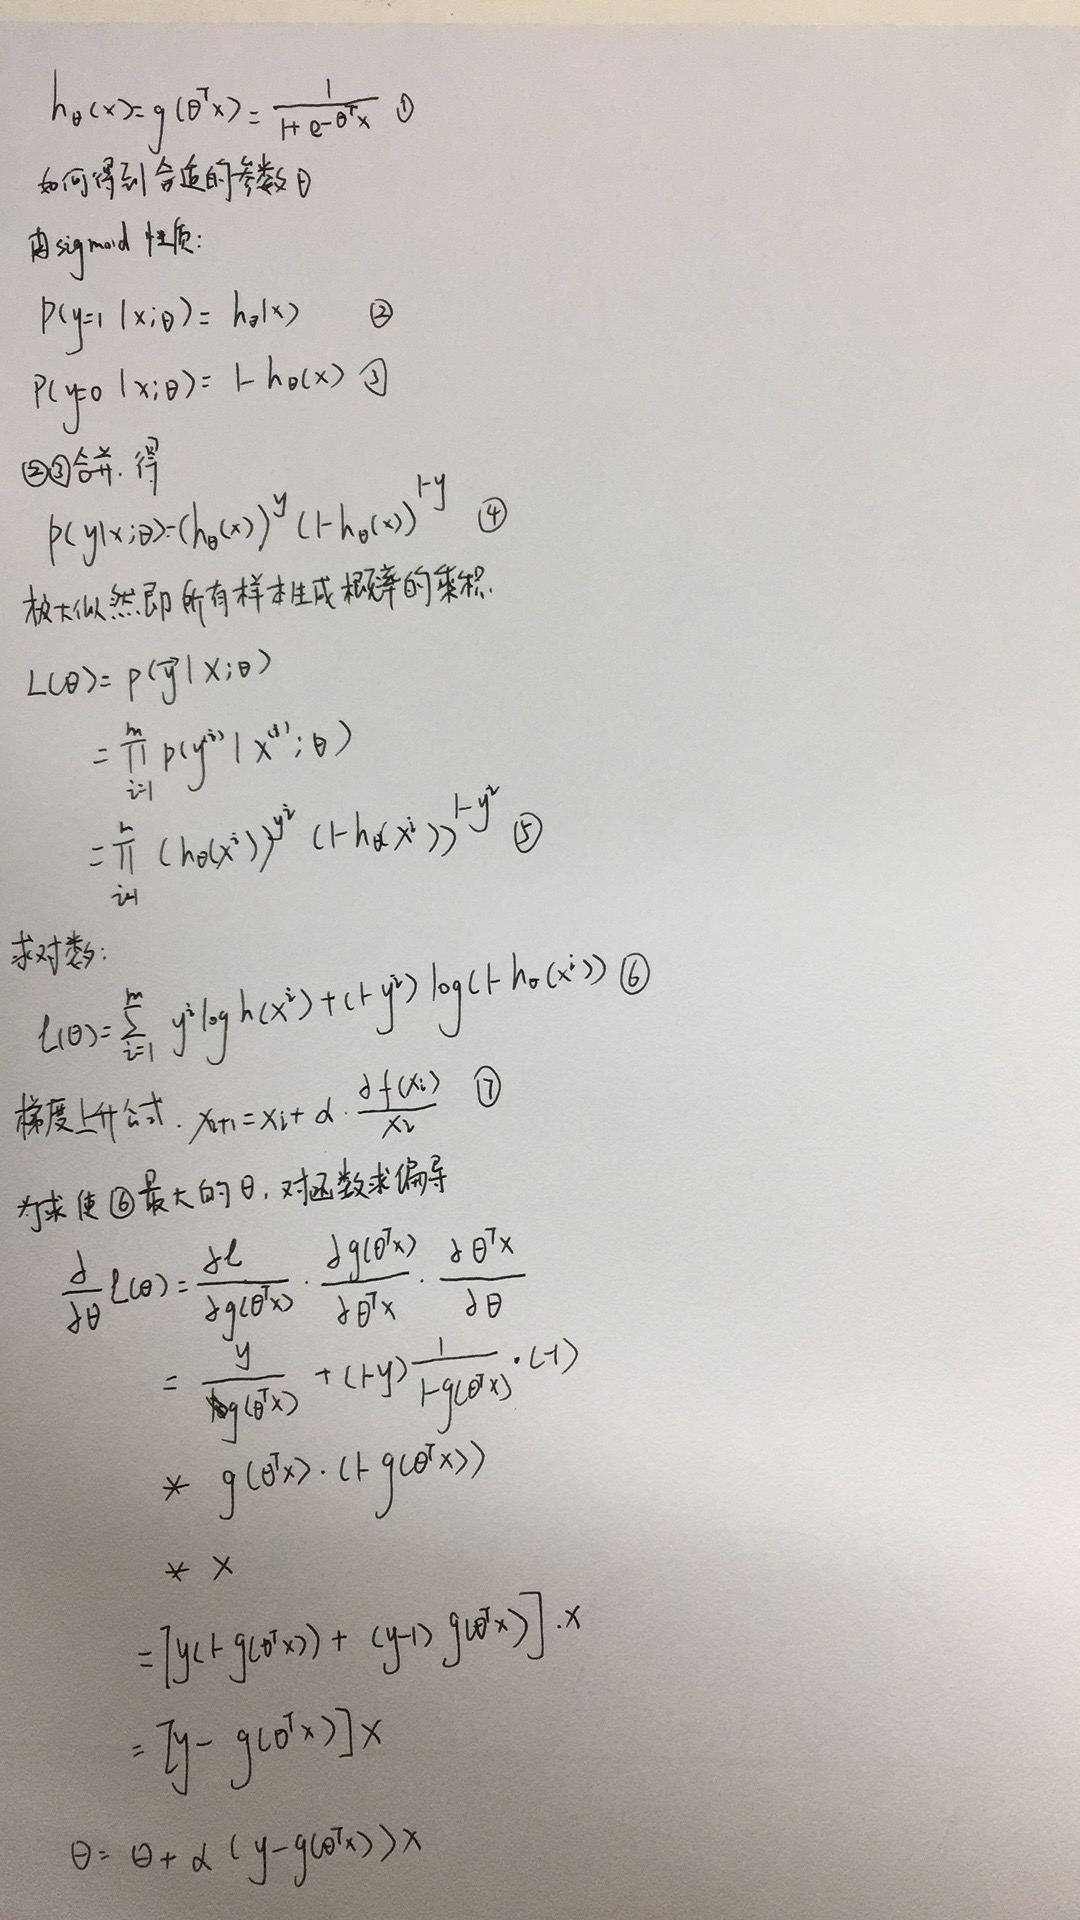 h_θ(x) = g(θ^T x) = 1/(1+e^{-θ^T x}) ①
如何得到合适的参数θ
由sigmoid 性质:
P(y=1 | x;θ) = h_θ(x) ②
P(y=0 | x;θ) = 1-h_θ(x) ③
②③合并.得
p(y|x;θ)=(h_θ(x))^y (1-h_θ(x))^{1-y} ④
极大似然即所有样本生成概率的乘积.
L(θ) = p(y⃗ | X;θ)
= ∏_{i=1}^{m} p(y^{(i)} | x^{(i)};θ)
= ∏_{i=1}^{m} (h_θ(x^i))^{y^i} (1-h_θ(x^i))^{1-y^i} ⑤
求对数:
l(θ) = ∑_{i=1}^{m} y^i log h(x^i) + (1-y^i) log(1-h_θ(x^i)) ⑥
梯度上升公式. x_{i+1} = x_i + α · ∂f(x_i)/x_i ⑦
为求使⑥最大的θ, 对函数求偏导
∂/∂θ l(θ) = ∂l/∂g(θ^T x) · ∂g(θ^T x)/∂θ^T x · ∂θ^T x/∂θ
= y/g(θ^T x) + (1-y) 1/(1-g(θ^T x)) · (-1)
* g(θ^T x) · (1-g(θ^T x))
* x
= [y(1-g(θ^T x)) + (y-1) g(θ^T x)] · x
= [y - g(θ^T x)] x
θ = θ + α (y-g(θ^T x)) x